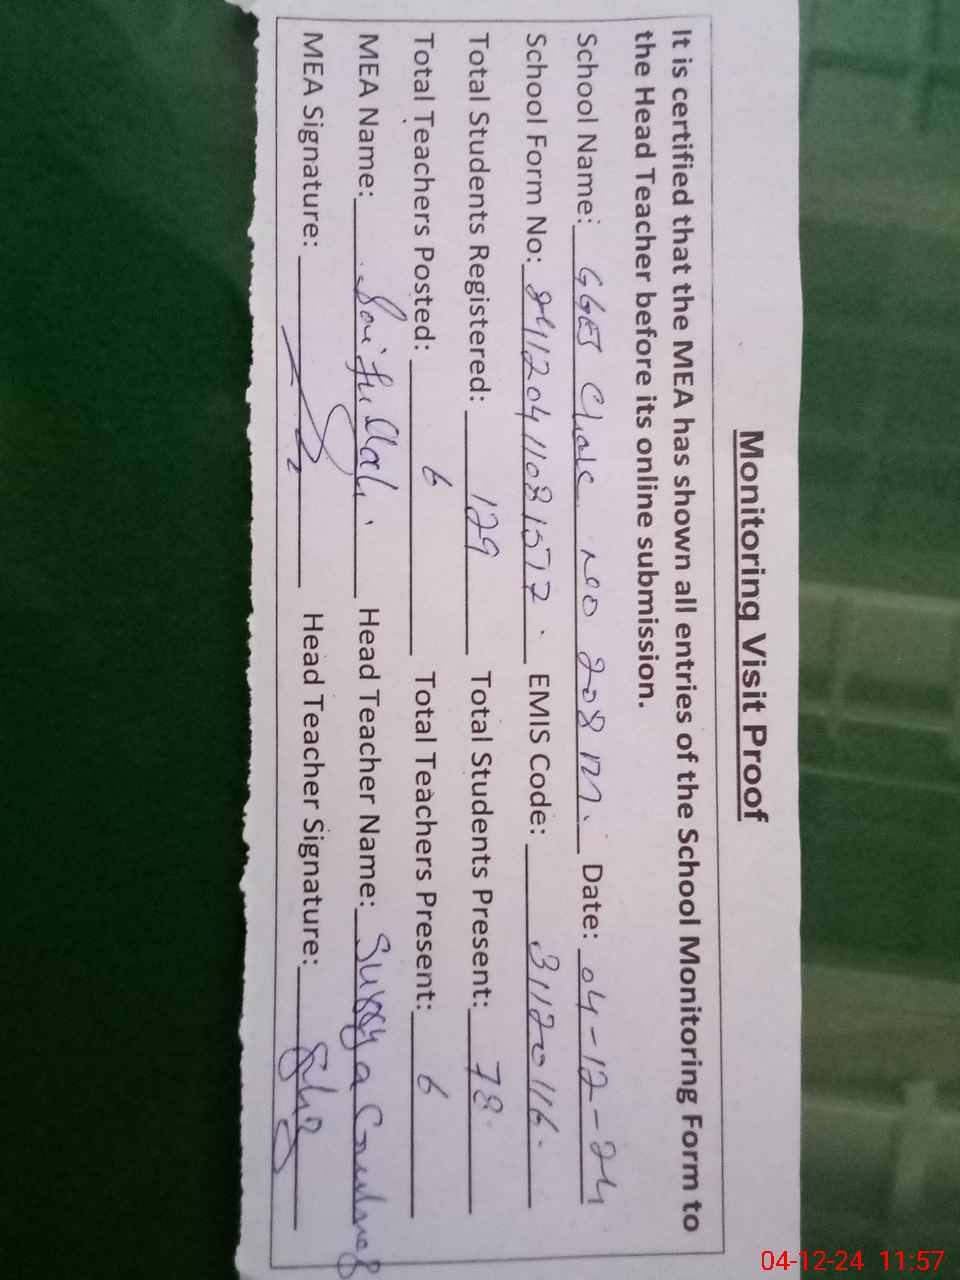 Monitoring Visit Proof
It is certified that the MEA has shown all entries of the School Monitoring Form to
the Head Teacher before its online submission.
School Name: GGES Chak No 208 M. Date: 04-12-24
School Form No: 84120411081577. EMIS Code: 31120116.
Total Students Registered: 129 Total Students Present: 78
Total Teachers Posted: 6 Total Teachers Present: 6
MEA Name: Saifullah. Head Teacher Name:
MEA Signature: Head Teacher Signature:
04-12-24 11:57